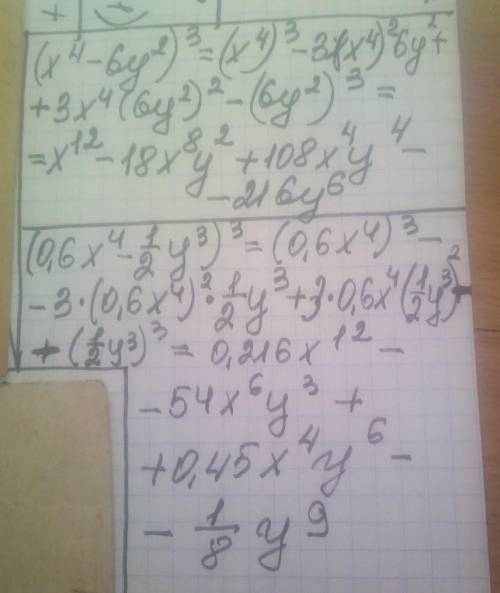 (x⁴-6y²)³=(x⁴)³-3(x⁴)²6y²+
+3x⁴(6y²)²-(6y²)³=
=x¹²-18x⁸y²+108x⁴y⁴-
-216y⁶
(0,6x⁴-1/2y³)³=(0,6x⁴)³-
-3·(0,6x⁴)²·1/2y³+3·0,6x⁴(1/2y³)²-
-(1/2y³)³=0,216x¹²-
-54x⁶y³+
+0,45x⁴y⁶-
-1/8y⁹